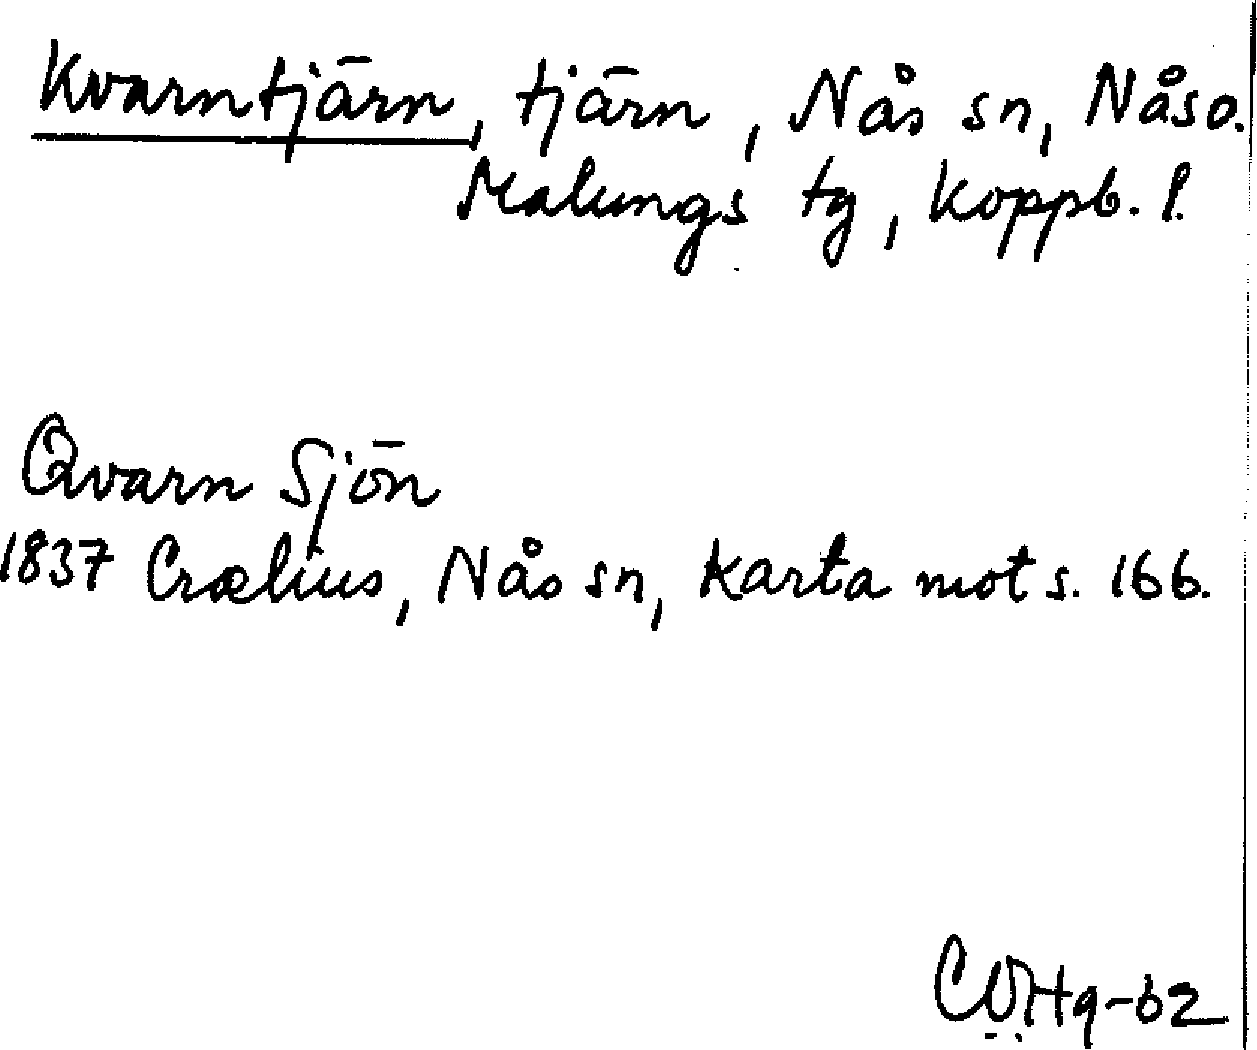 Kvarntjärn, tjärn, Nås sn, Nås o.
Malungs tg, Koppb. l.
Qvarn Sjön
1837 Crælius, Nås sn, karta mot s. 166.